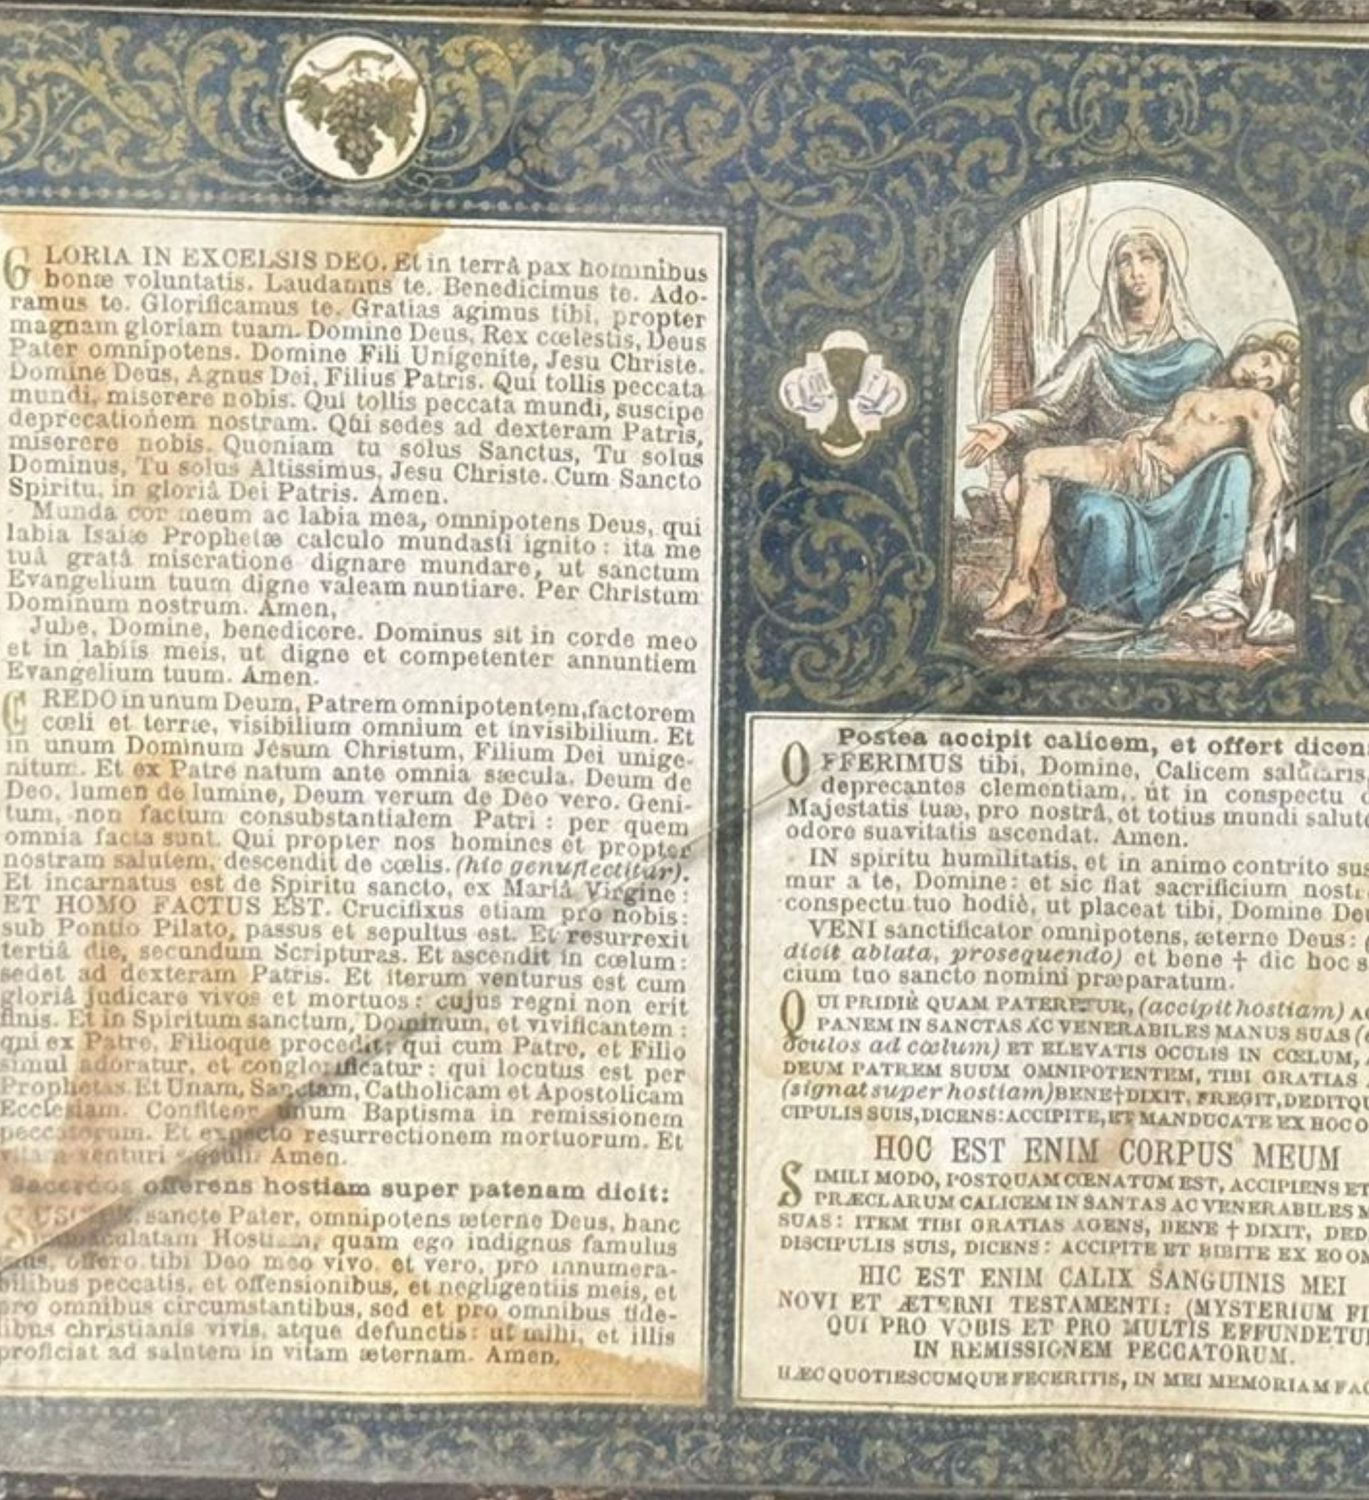 GLORIA IN EXCELSIS DEO. Et in terrâ pax hominibus
bonæ voluntatis. Laudamus te. Benedicimus te. Ado-
ramus te. Glorificamus te. Gratias agimus tibi, propter
magnam gloriam tuam. Domine Deus, Rex cœlestis, Deus
Pater omnipotens. Domine Fili Unigenite, Jesu Christe.
Domine Deus, Agnus Dei, Filius Patris. Qui tollis peccata
mundi, miserere nobis. Qui tollis peccata mundi, suscipe
deprecationem nostram. Qui sedes ad dexteram Patris,
miserere nobis. Quoniam tu solus Sanctus, Tu solus
Dominus, Tu solus Altissimus, Jesu Christe. Cum Sancto
Spiritu, in gloriâ Dei Patris. Amen.
Munda cor meum ac labia mea, omnipotens Deus, qui
labia Isaiæ Prophetæ calculo mundasti ignito : ita me
tuâ gratâ miseratione dignare mundare, ut sanctum
Evangelium tuum digne valeam nuntiare. Per Christum
Dominum nostrum. Amen,
Jube, Domine, benedicere. Dominus sit in corde meo
et in labiis meis, ut digne et competenter annuntiem
Evangelium tuum. Amen.
CREDO in unum Deum, Patrem omnipotentem, factorem
cœli et terræ, visibilium omnium et invisibilium. Et
in unum Dominum Jesum Christum, Filium Dei unige-
nitum. Et ex Patre natum ante omnia sæcula. Deum de
Deo, lumen de lumine, Deum verum de Deo vero. Geni-
tum, non factum consubstantialem Patri : per quem
omnia facta sunt. Qui propter nos homines et propter
nostram salutem, descendit de cœlis. (hic genuflectitur).
Et incarnatus est de Spiritu sancto, ex Mariâ Virgine :
ET HOMO FACTUS EST. Crucifixus etiam pro nobis :
sub Pontio Pilato, passus et sepultus est. Et resurrexit
tertiâ die, secundum Scripturas. Et ascendit in cœlum :
sedet ad dexteram Patris. Et iterum venturus est cum
gloriâ judicare vivos et mortuos : cujus regni non erit
finis. Et in Spiritum sanctum, Dominum, et vivificantem :
qui ex Patre, Filioque procedit; qui cum Patre, et Filio
simul adoratur, et conglorificatur : qui locutus est per
Prophetas. Et Unam, Sanctam, Catholicam et Apostolicam
Ecclesiam. Confiteor unum Baptisma in remissionem
peccatorum. Et expecto resurrectionem mortuorum. Et
vitam venturi sæculi. Amen.
Sacerdos offerens hostiam super patenam dicit:
SUSCIPE, sancte Pater, omnipotens æterne Deus, hanc
immaculatam Hostiam, quam ego indignus famulus
tuus, offero tibi Deo meo vivo, et vero, pro innumera-
bilibus peccatis, et offensionibus, et negligentiis meis, et
pro omnibus circumstantibus, sed et pro omnibus fide-
libus christianis vivis, atque defunctis : ut mihi, et illis
proficiat ad salutem in vitam æternam. Amen.
Postea accipit calicem, et offert dicens
OFFERIMUS tibi, Domine, Calicem salutaris,
deprecantes clementiam, ut in conspectu
Majestatis tuæ, pro nostrâ, et totius mundi salute
odore suavitatis ascendat. Amen.
IN spiritu humilitatis, et in animo contrito sus
mur a te, Domine : et sic fiat sacrificium nostr
conspectu tuo hodiè, ut placeat tibi, Domine De
VENI sanctificator omnipotens, æterne Deus : (
dicit ablata, prosequendo) et bene † dic hoc s
cium tuo sancto nomini præparatum.
QUI PRIDIÈ QUAM PATERETUR, (accipit hostiam) AC
PANEM IN SANCTAS AC VENERABILES MANUS SUAS (
oculos ad cœlum) ET ELEVATIS OCULIS IN CŒLUM,
DEUM PATREM SUUM OMNIPOTENTEM, TIBI GRATIAS
(signat super hostiam) BENE†DIXIT, FREGIT, DEDITQU
CIPULIS SUIS, DICENS: ACCIPITE, ET MANDUCATE EX HOC O
HOC EST ENIM CORPUS MEUM
SIMILI MODO, POSTQUAM CŒNATUM EST, ACCIPIENS ET
PRÆCLARUM CALICEM IN SANTAS AC VENERABILES M
SUAS : ITEM TIBI GRATIAS AGENS, BENE † DIXIT, DED
DISCIPULIS SUIS, DICENS : ACCIPITE ET BIBITE EX EO OM
HIC EST ENIM CALIX SANGUINIS MEI
NOVI ET ÆTERNI TESTAMENTI: (MYSTERIUM FI
QUI PRO VOBIS ET PRO MULTIS EFFUNDETU
IN REMISSIONEM PECCATORUM.
HÆC QUOTIESCUMQUE FECERITIS, IN MEI MEMORIAM FAC